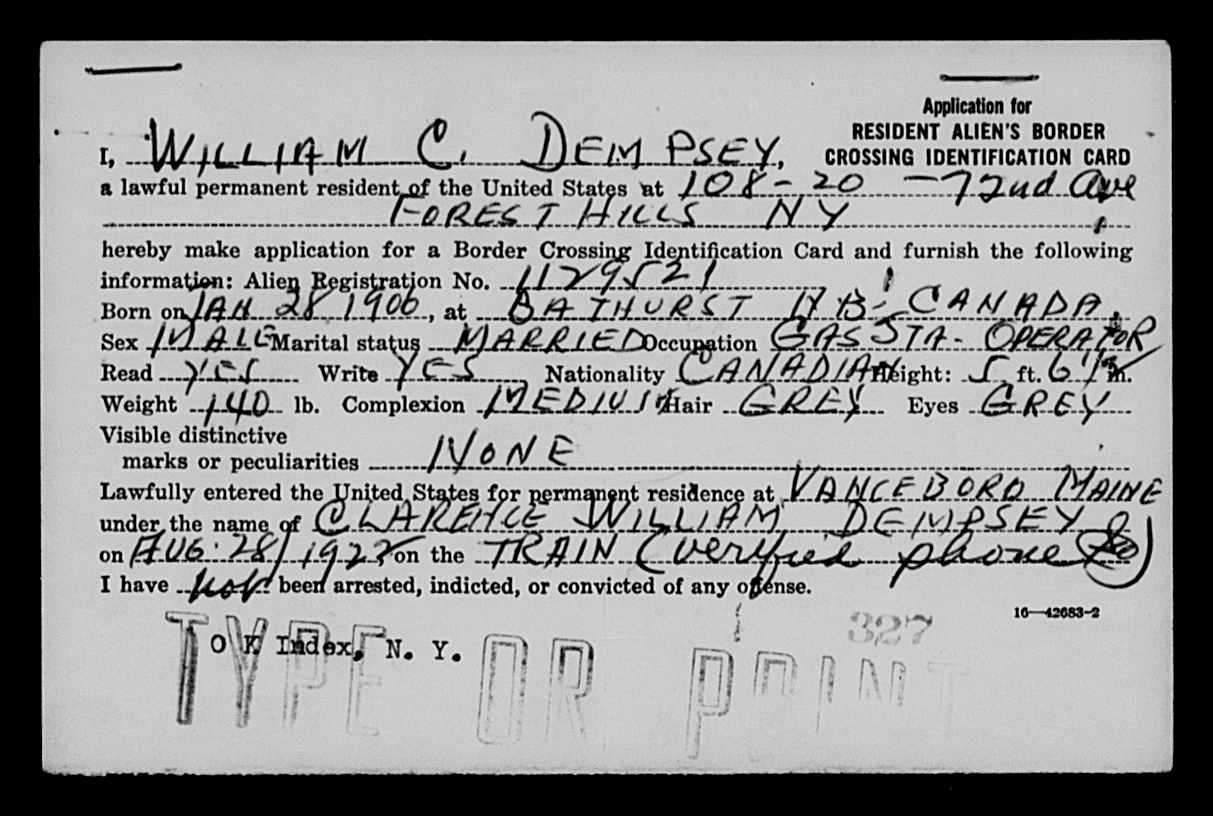 Application for
RESIDENT ALIEN'S BORDER
CROSSING IDENTIFICATION CARD
I, WILLIAM C. DEMPSEY,
a lawful permanent resident of the United States at 108-20 - 72nd Ave
FOREST HILLS NY
hereby make application for a Border Crossing Identification Card and furnish the following
information: Alien Registration No. 1129521
Born on JAN 28 1906, at BATHURST NB CANADA
Sex MALE Marital status MARRIED Occupation GAS STA- OPERATOR
Read YES Write YES Nationality CANADIAN Height: 5 ft. 6 1/2 in.
Weight 140 lb. Complexion MEDIUM Hair GREY Eyes GREY
Visible distinctive
marks or peculiarities NONE
Lawfully entered the United States for permanent residence at VANCEBORO MAINE
under the name of CLARENCE WILLIAM DEMPSEY
on AUG. 28/ 1922 on the TRAIN (verified phone)
I have not been arrested, indicted, or convicted of any offense.
16—42683-2
327
O K Index, N. Y.
TYPE OR PRINT